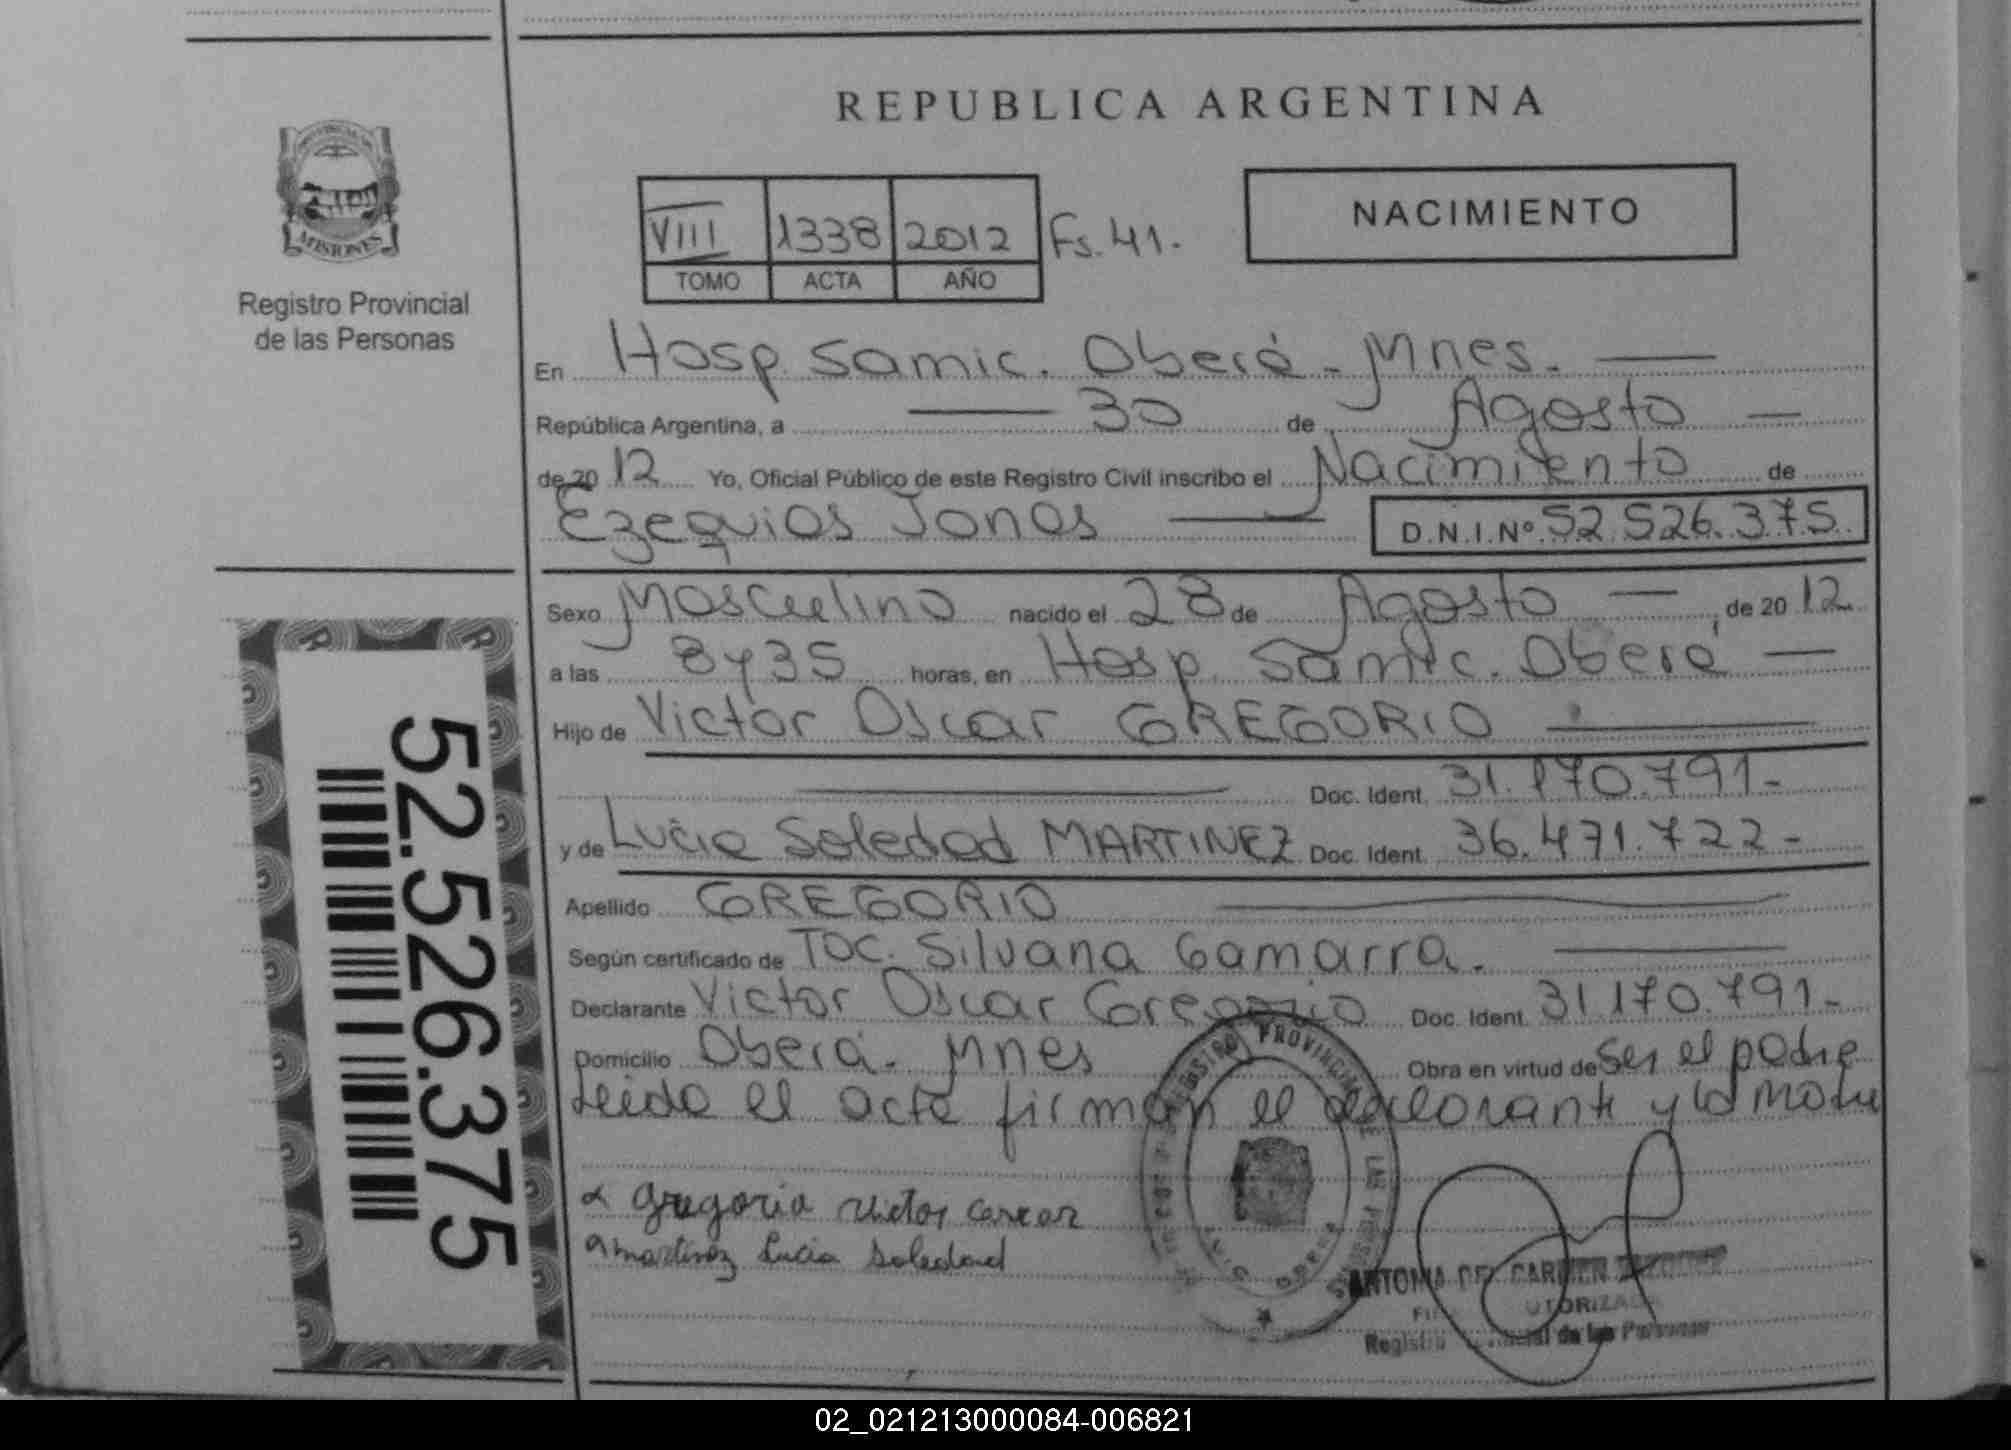 REPUBLICA ARGENTINA
MISIONES
Registro Provincial
de las Personas
VIII 1338 2012 Fs. 41.
TOMO ACTA AÑO
NACIMIENTO
En Hosp. Samic. Oberá - Mnes.
República Argentina, a 30 de Agosto
de 2012 Yo, Oficial Público de este Registro Civil inscribo el Nacimiento de
Ezequias Jonas D.N.I.Nº 52.526.375.
Sexo Masculino nacido el 28 de Agosto, de 2012
a las 8 y 35 horas, en Hosp. Samic. Oberá
Hijo de Victor Oscar GREGORIO
Doc. Ident. 31.170.791-
y de Lucia Soledad MARTINEZ Doc. Ident. 36.471.722-
Apellido GREGORIO
Según certificado de Toc. Silvana Gamarra.
Declarante Victor Oscar Gregorio Doc. Ident. 31.170.791-
Domicilio Oberá. Mnes Obra en virtud de Ser el padre
Leida el acta firman el declarante y la madre
Gregorio Victor
Martinez Lucia Soledad
REGISTRO PROVINCIAL DE LAS PERSONAS
ANTONIA DEL CARMEN
AUTORIZADA
Registro Provincial de las Personas
52.526.375
02_021213000084-006821